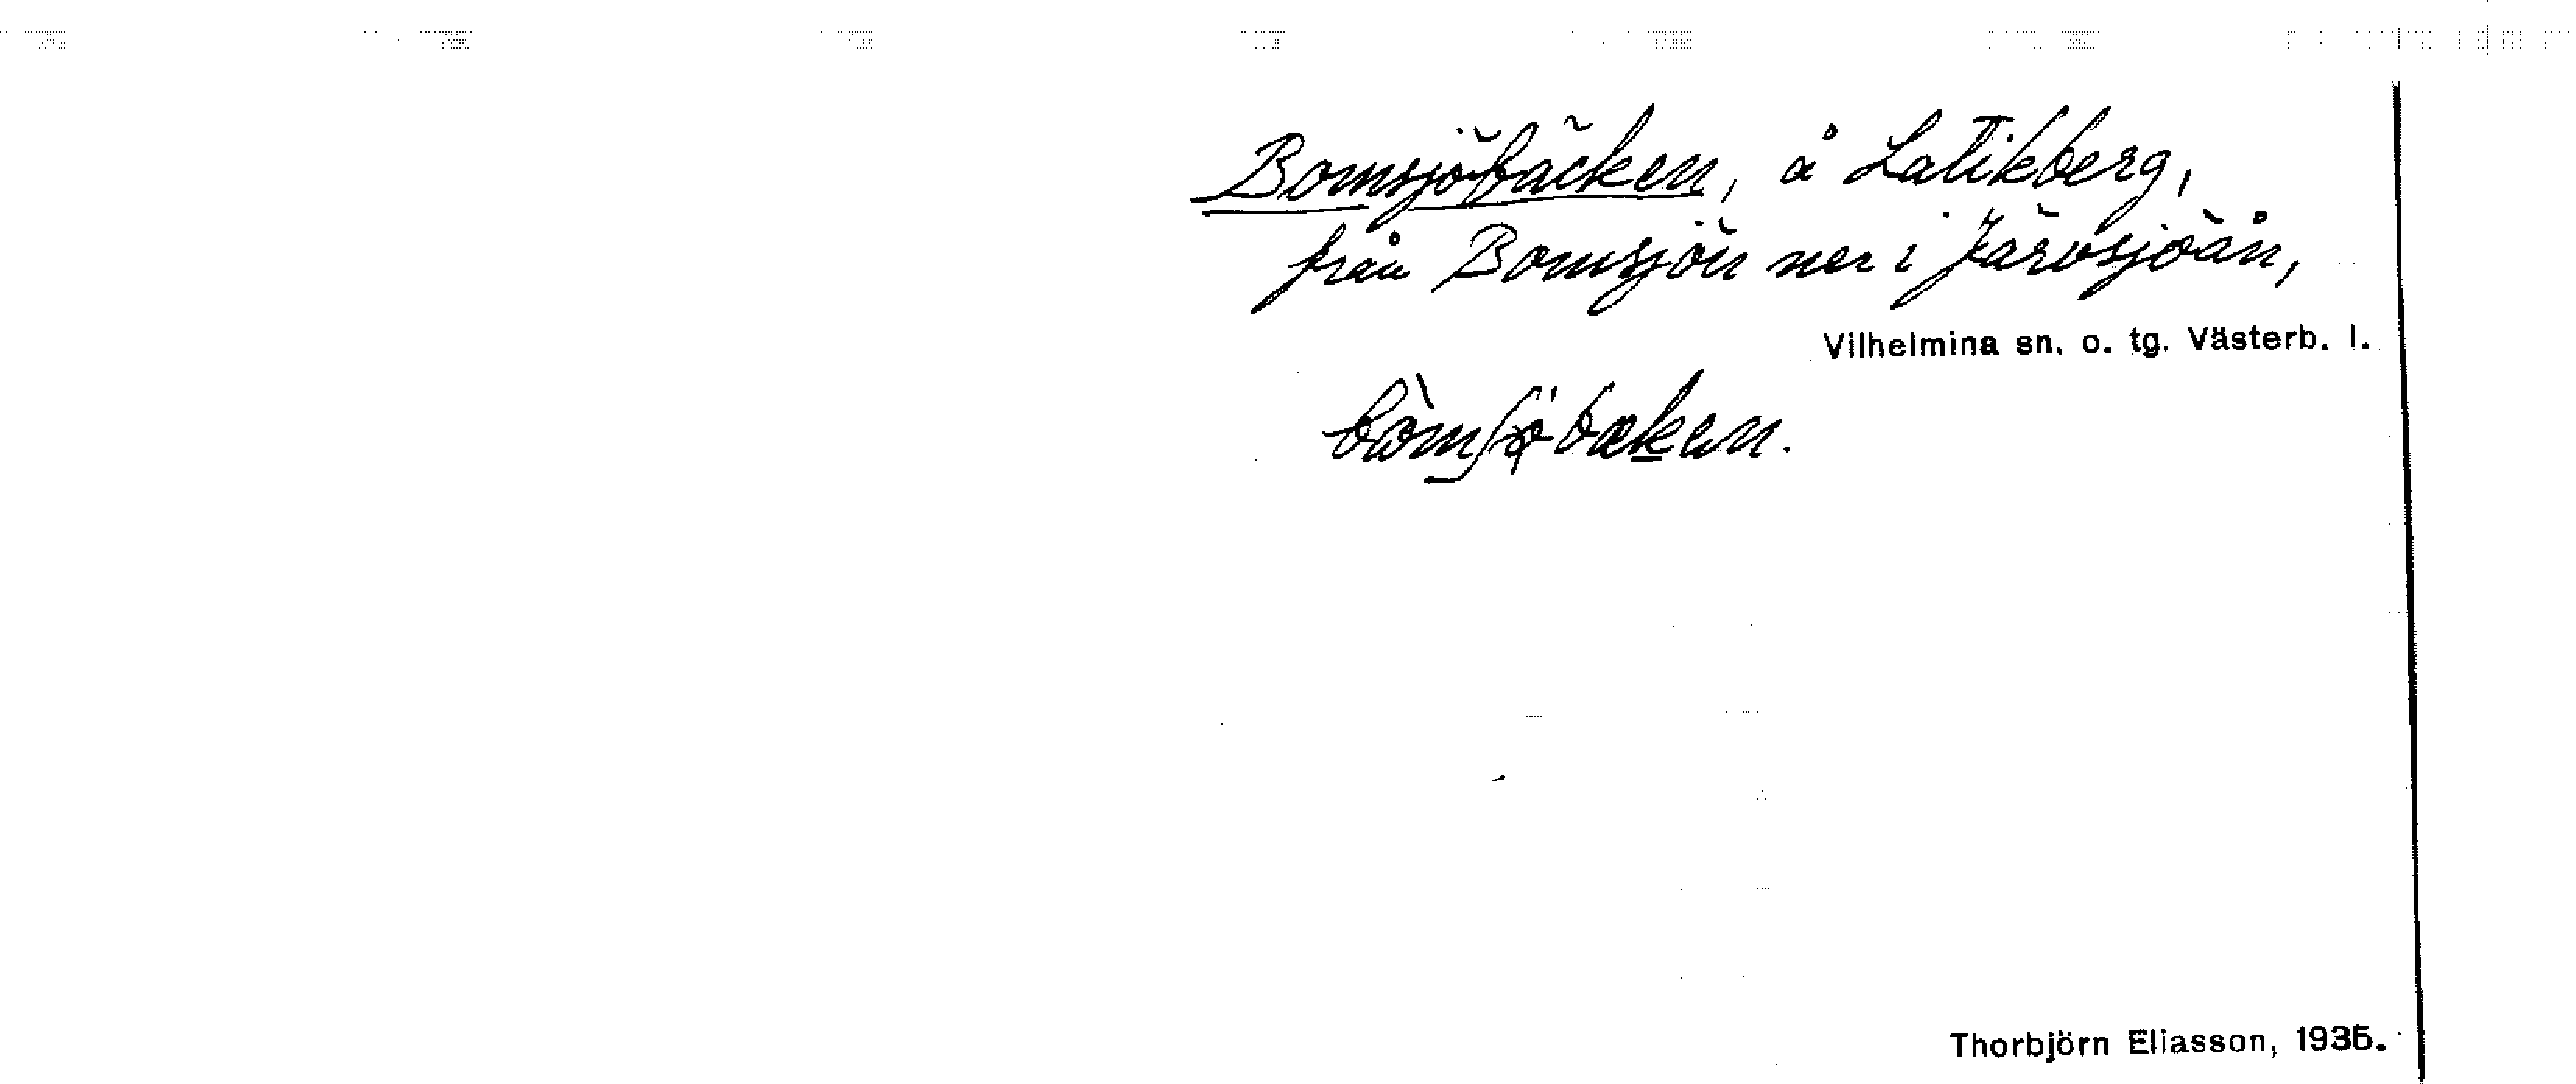 Bomsjöbäcken, å Latikberg,
från Bomsjön ner i Järvsjöån,
Vilhelmina sn. o. tg. Västerb. l.
bòmʃöbækɘn.
Thorbjörn Eliasson, 1935.